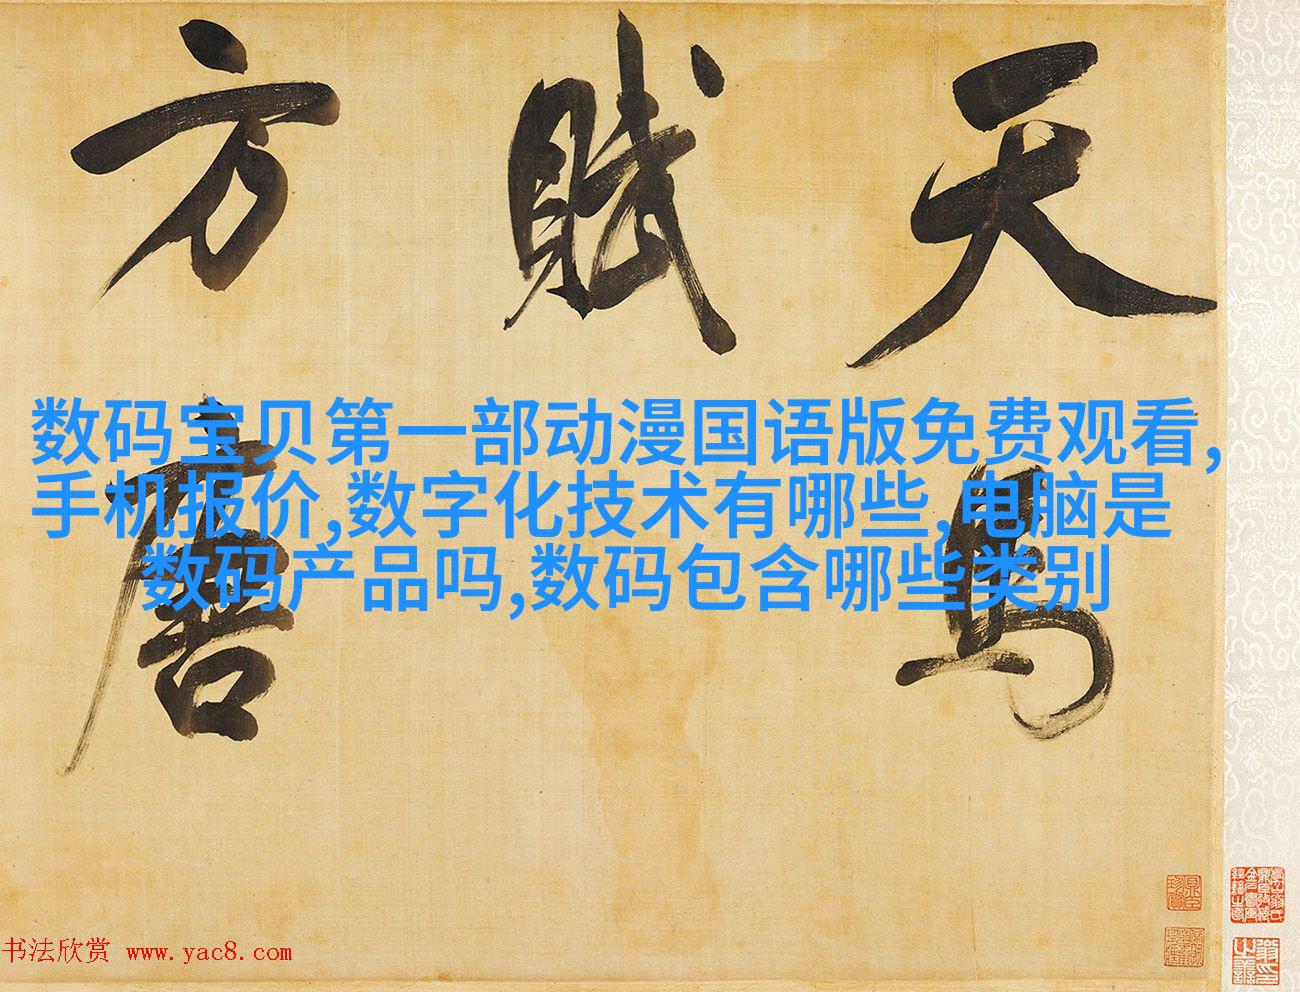 天馬
賦
方唐
数码宝贝第一部动漫国语版免费观看,
手机报价,数字化技术有哪些,电脑是
数码产品吗,数码包含哪些类别
书法欣赏 www.yac8.com